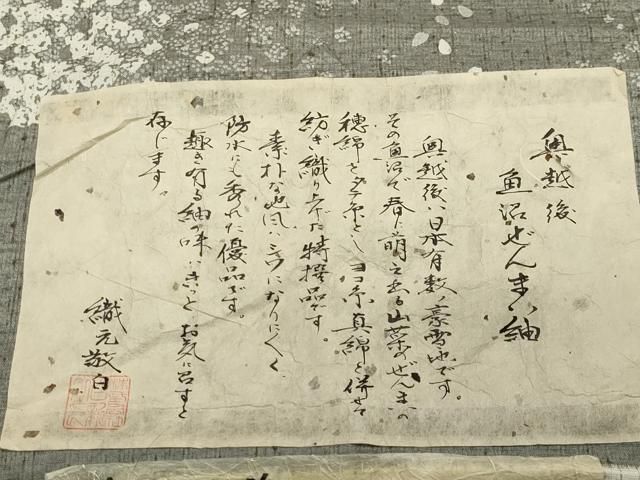 奥越後
魚沼ぜんまい紬
奥越後は日本有数の豪雪地です。
その魚沼で春に萌える山菜のぜんまいの
穂綿をタテ糸とし ヨコ糸真綿と併せて
紡ぎ織り上げた特撰品です。
素朴な地風にシワになりにくく
防水にも秀れた優品です。
趣き有る紬の味はきっとお気に召すと
存じます。
織元敬白